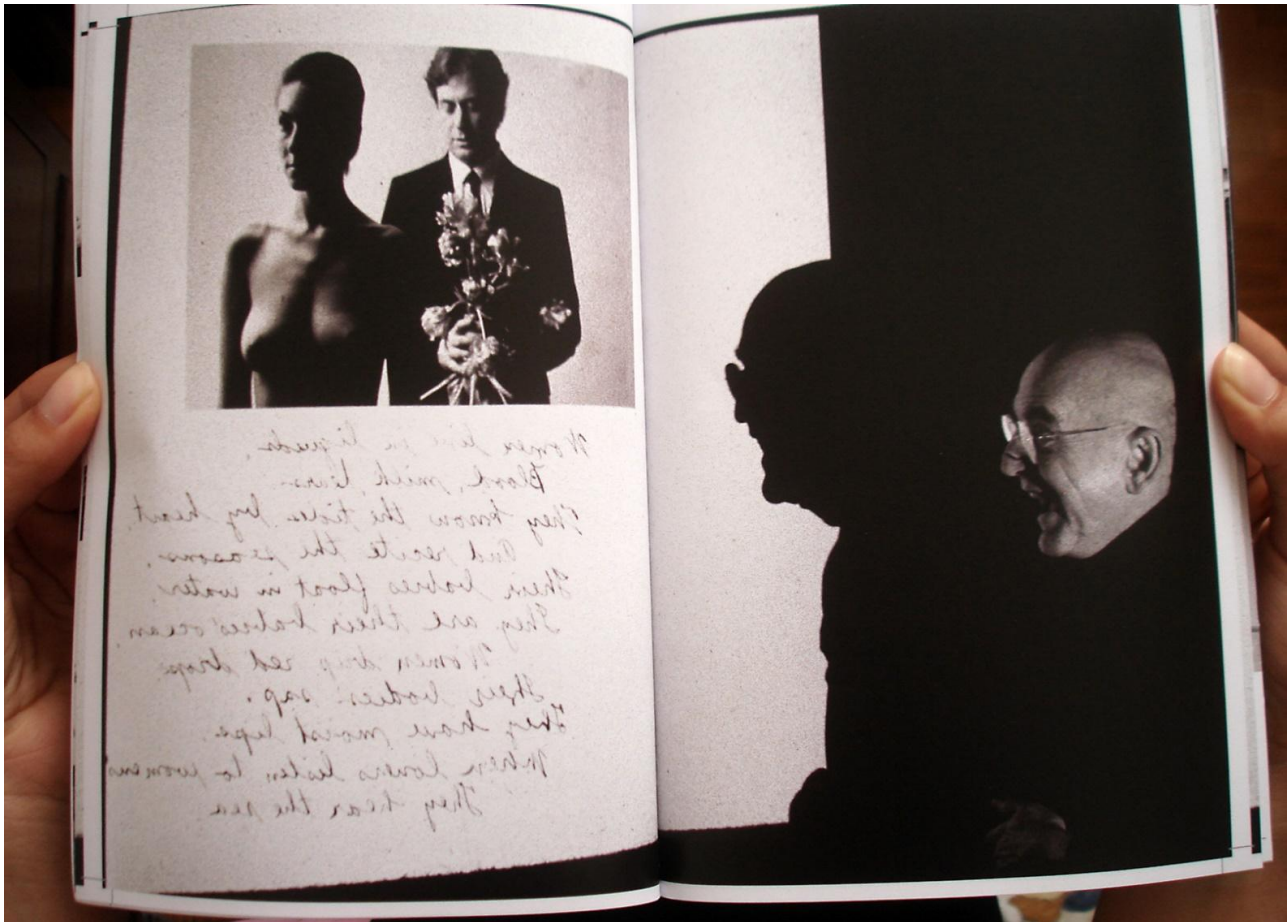 Women live in liquids.
Blood, milk, tears.
They know the tides by heart.
And recite the seasons.
Their babies float in water.
They are their babies' ocean.
Women drip red drops
Their bodies' sap.
They have moist lips.
When lovers listen to womens
They hear the sea